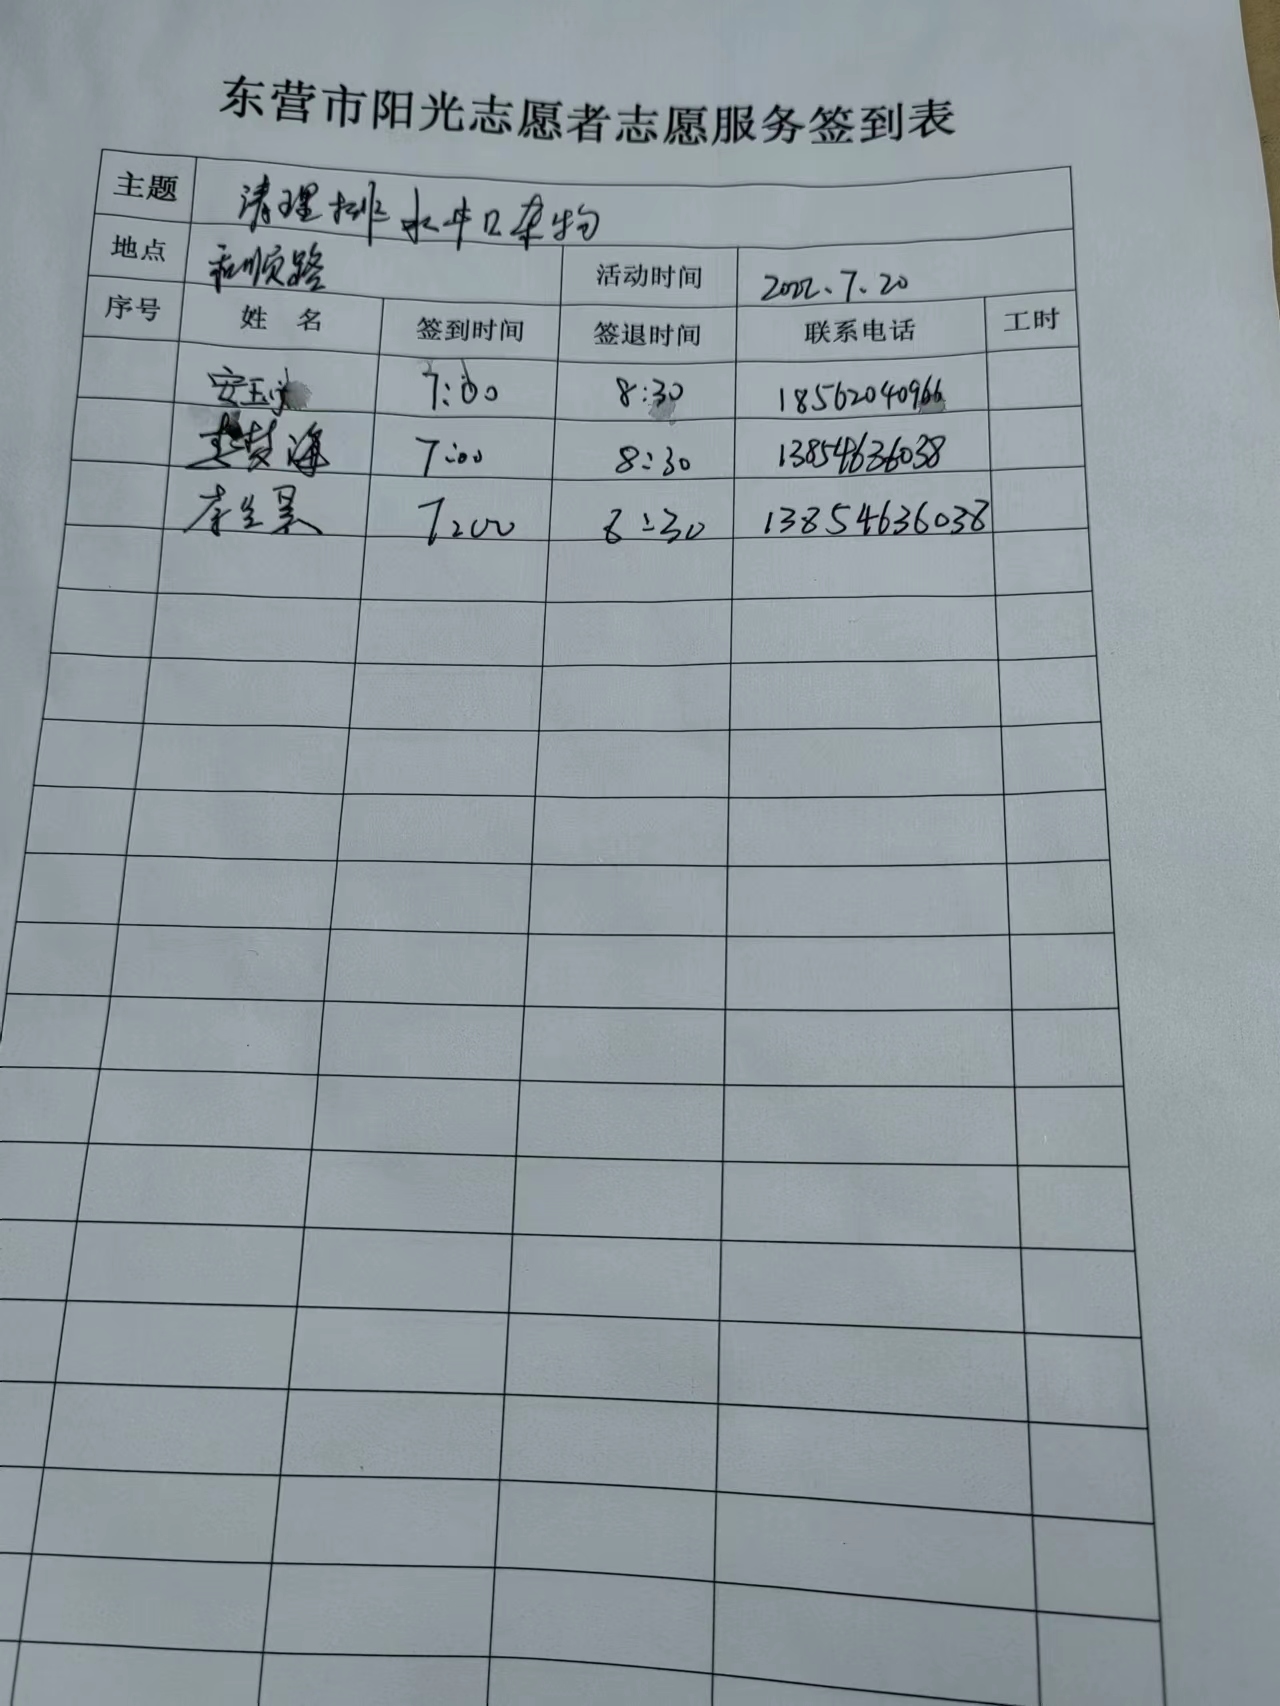 东营市阳光志愿者志愿服务签到表
主题 清理排水井口杂物
地点 和顺路 活动时间 2022.7.20
序号 姓 名 签到时间 签退时间 联系电话 工时
安玉 7:00 8:30 18562040966
梦海 7:00 8:30 13854636038
7:00 8:30 13854636038